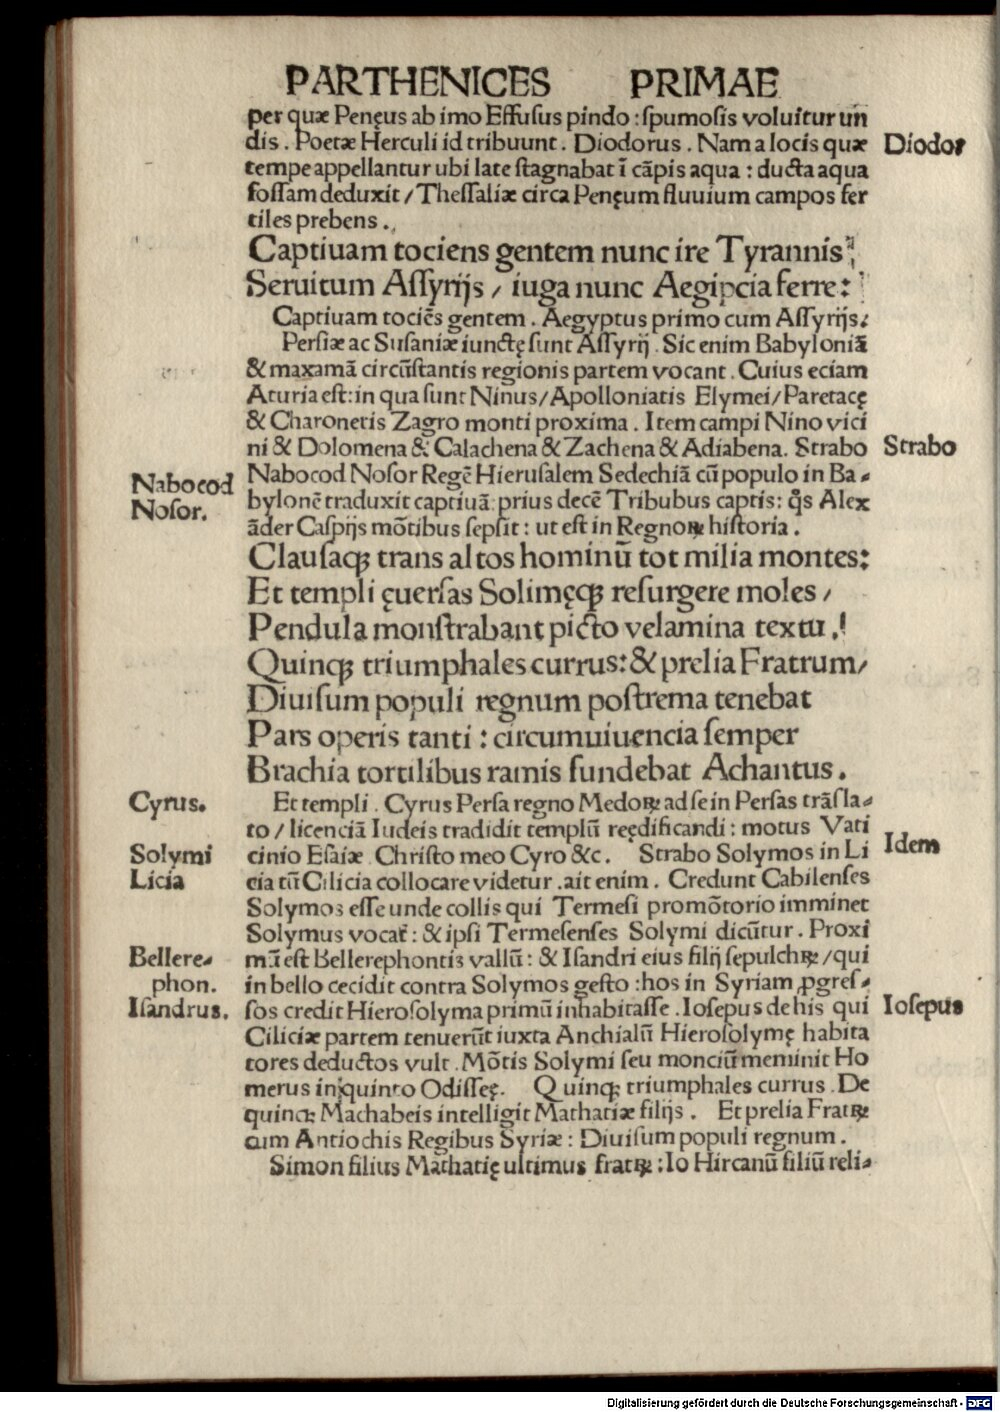 PARTHENICES PRIMAE
per quæ Penęus ab imo Effusus pindo : ſpumoſis voluitur un
dis . Poetæ Herculi id tribuunt . Diodorus . Nam a locis quæ
Diodor
tempe appellantur ubi late ſtagnabat ī cāpis aqua : ducta aqua
foſſam deduxit / Theſſaliæ circa Penęum fluuium campos fer
tiles prebens .
Captiuam tociens gentem nunc ire Tyrannis
Seruitum Aſſyrijs / iuga nunc Aegipcia ferre :
Captiuam tociēs gentem . Aegyptus primo cum Aſſyrijs .
Perſiæ ac Suſaniæ iunctę ſunt Aſſyrij . Sic enim Babyloniā
& maxamā circūſtantis regionis partem vocant . Cuius eciam
Aturia eſt : in qua ſunt Ninus / Apolloniatis Elymei / Paretacę
& Charonetis Zagro monti proxima . Item campi Nino vici
ni & Dolomena & Calachena & Zachena & Adiabena . Strabo
Strabo
Nabocod
Noſor.
Nabocod Noſor Regē Hieruſalem Sedechiā cū populo in Ba-
bylonē traduxit captiuā : prius decē Tribubus captis : q̊s Alex
āder Caſpijs mōtibus ſepſit : ut eſt in Regnoꝝ hiſtoria .
Clauſaqꝫ trans altos hominū tot milia montes :
Et templi ęuerſas Solimęqꝫ reſurgere moles /
Pendula monſtrabant picto velamina textu .
Quinqꝫ triumphales currus : & prelia Fratrum /
Diuiſum populi regnum poſtrema tenebat
Pars operis tanti : circumuiuencia ſemper
Brachia tortilibus ramis fundebat Achantus .
Cyrus.
Et templi . Cyrus Perſa regno Medoꝝ ad ſe in Perſas trāſla-
to / licenciā Iudeis tradidit templū reędificandi : motus Vati
Solymi
cinio Eſaiæ . Chriſto meo Cyro &c . Strabo Solymos in Li
Idem
Licia
cia tū Cilicia collocare videtur . ait enim . Credunt Cabilenſes
Solymos eſſe unde collis qui Termeſi promōtorio imminet
Solymus vocat̄ : & ipſi Termeſenſes Solymi dicūtur . Proxi
Bellere-
phon.
mū eſt Bellerephontis vallū : & Iſandri eius filij ſepulchꝝ / qui
in bello cecidit contra Solymos geſto : hos in Syriam ꝓgreſ-
Iſandrus.
ſos credit Hieroſolyma primū inhabitaſſe . Ioſepus de his qui
Ioſepus
Ciliciæ partem tenuerūt iuxta Anchialū Hieroſolymę habita
tores deductos vult . Mōtis Solymi ſeu monciū meminit Ho
merus in quinto Odiſſeę . Quinqꝫ triumphales currus . De
quinqꝫ Machabeis intelligit Mathatiæ filijs . Et prelia Fratꝝ
cum Antiochis Regibus Syriæ : Diuiſum populi regnum .
Simon filius Mathatię ultimus fratꝝ : Io Hircanū filiū reli-
Digitalisierung gefördert durch die Deutsche Forschungsgemeinschaft - DFG